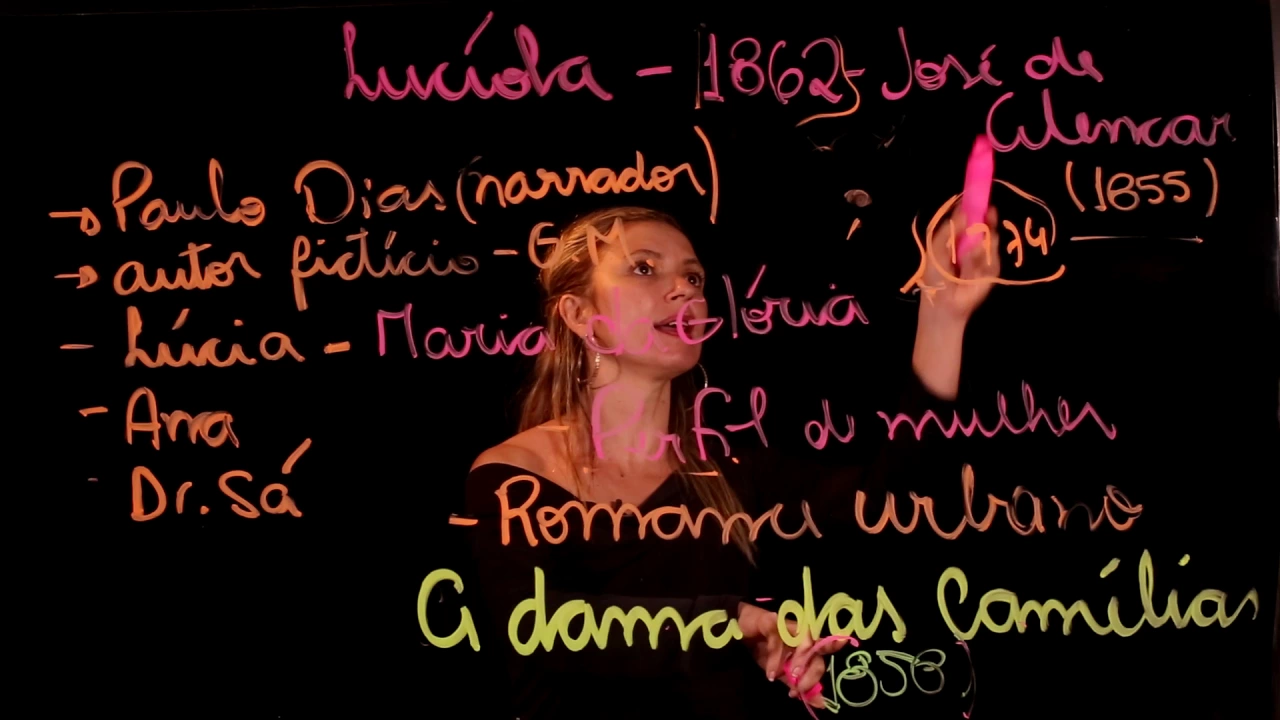 Lucíola - 1862 - José de
Alencar
(1855)
→ Paulo Dias (narrador)
→ autor fictício - G.M
1774
- Lúcia - Maria da Glória
- Ana
- Perfil de mulher
- Dr. Sá
- Romance urbano
A dama das Camílias
(1858)